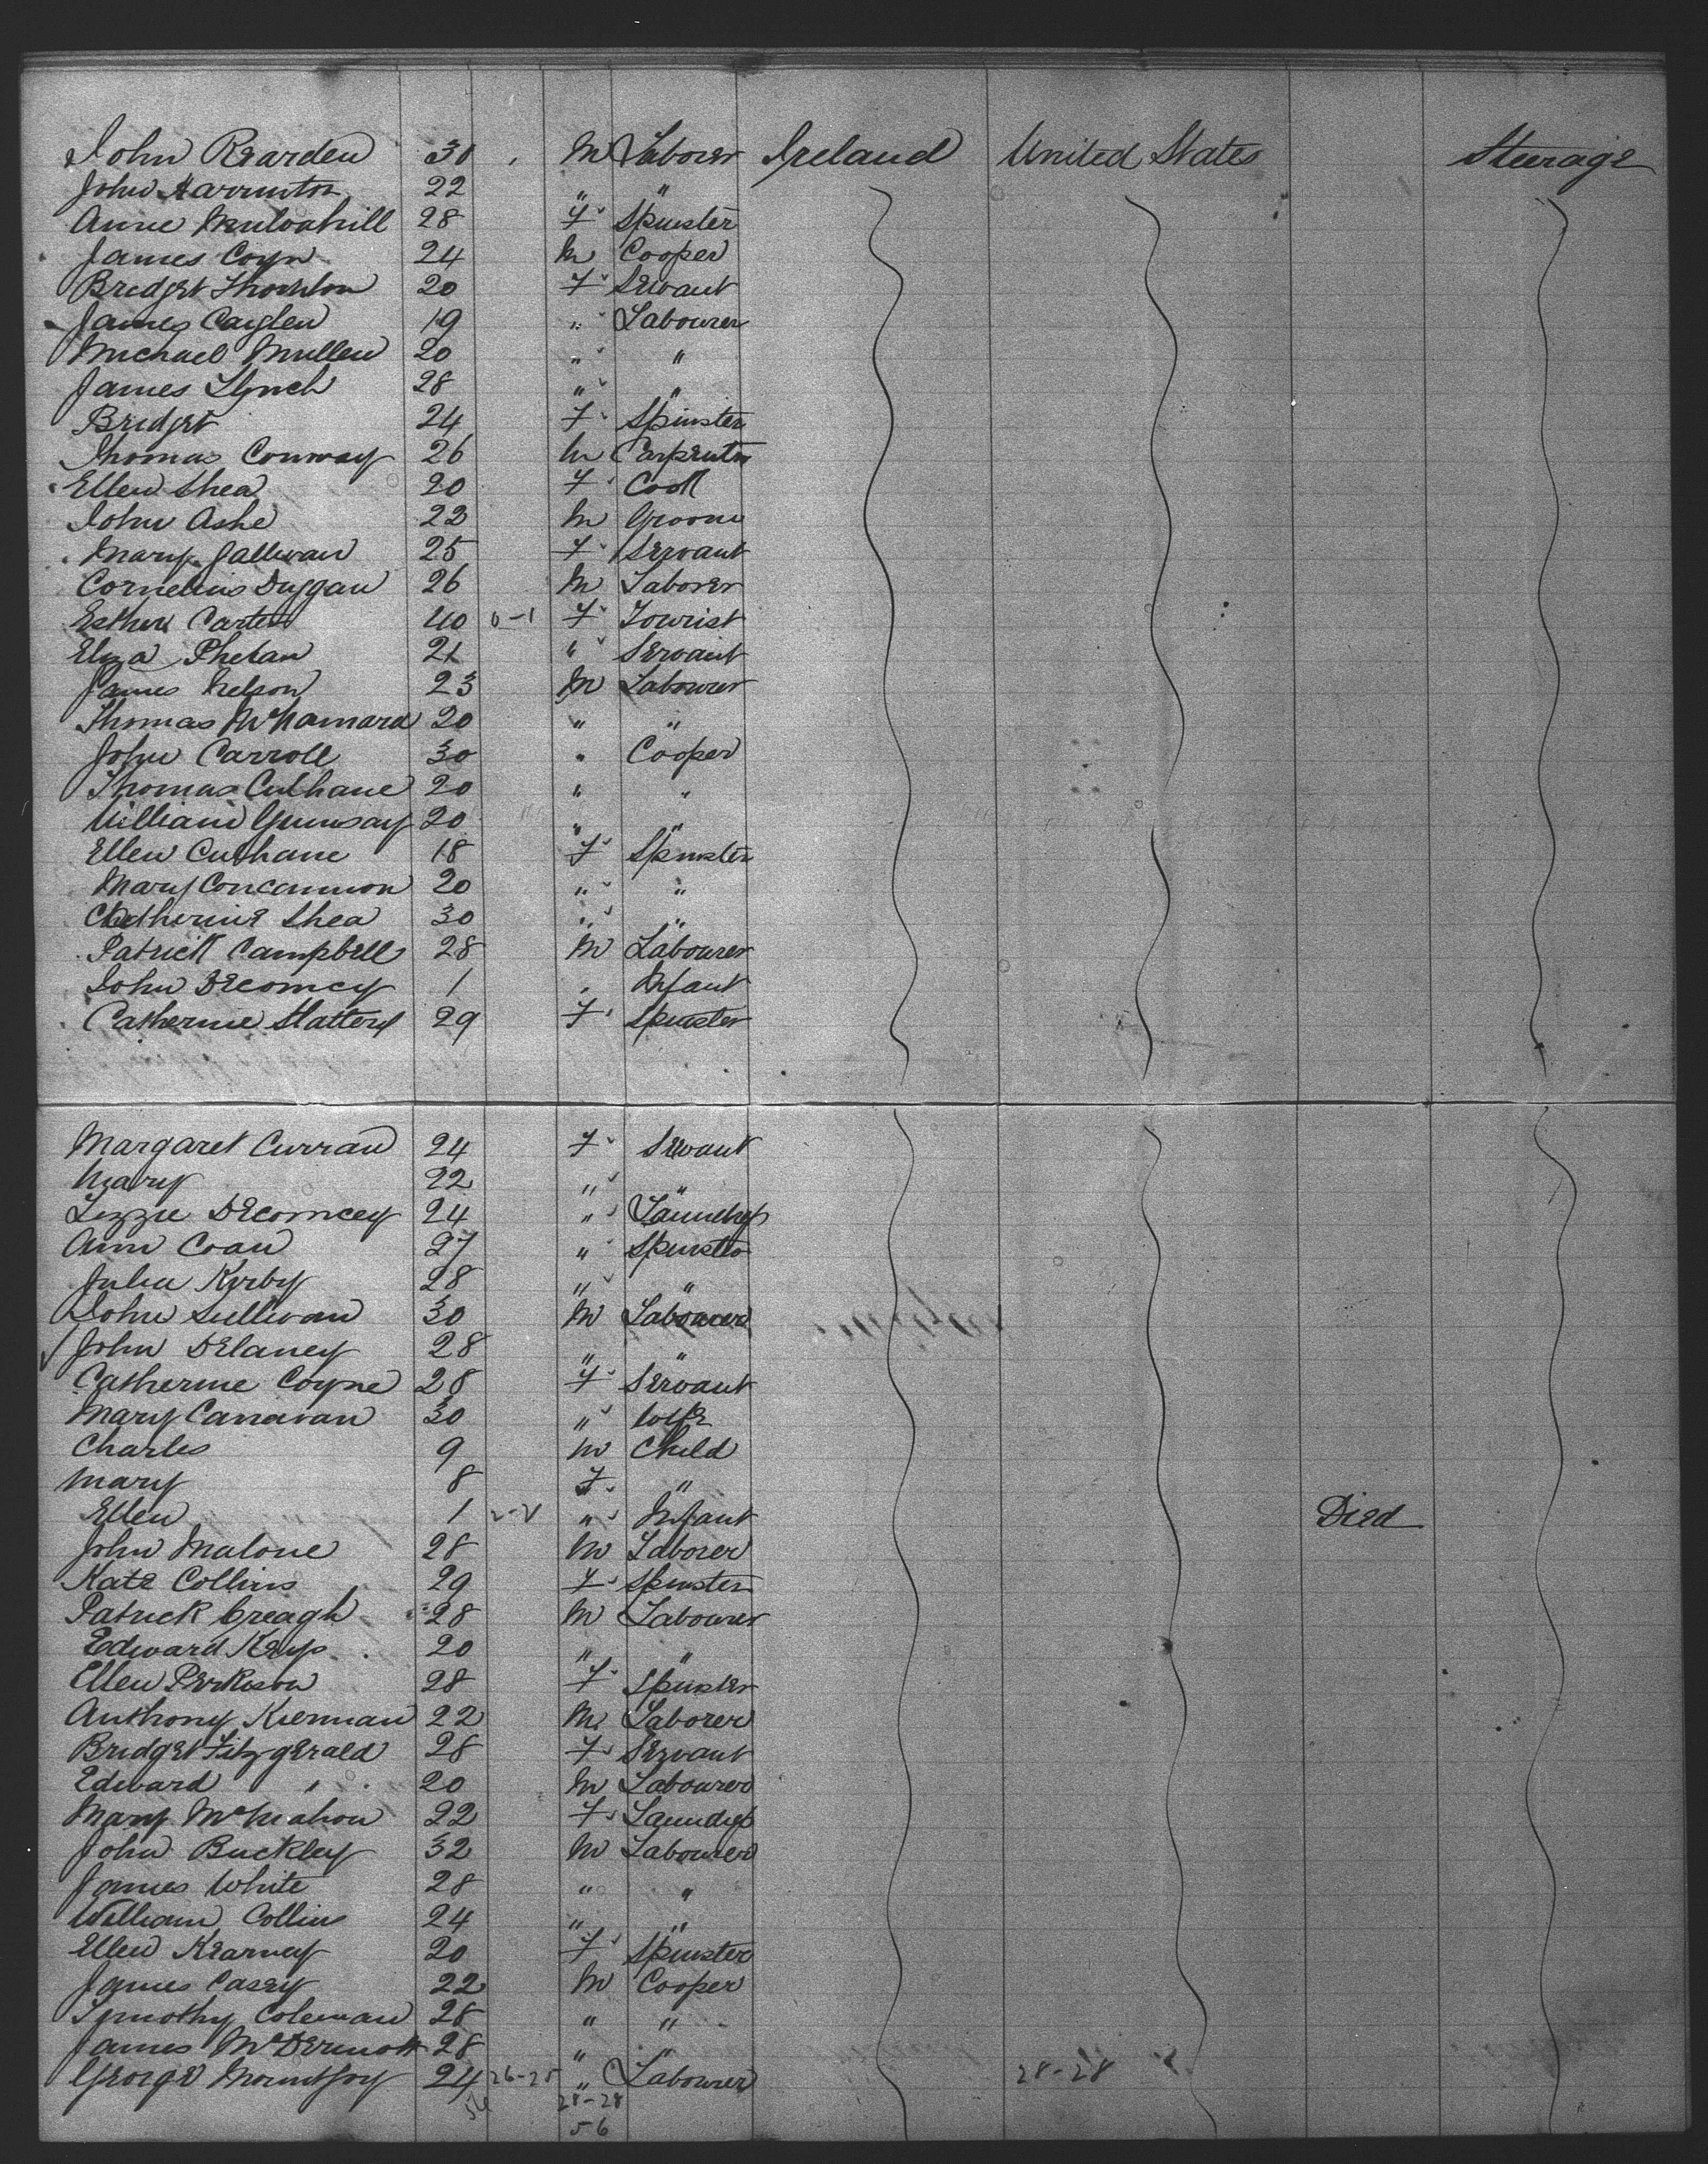 John Rearden 30 M Laborer Ireland United States Steerage
John Harrinton 22 " "
Anne Mulvahill 28 F Spinster
James Coyn 24 M Cooper
Bridget Thornton 20 F Servant
James Cayleu 19 " Labourer
Michael Mullen 20 " "
James Lynch 28 " "
Bridget 24 F Spinster
Thomas Conway 26 M Carpenter
Ellen Shea 20 F Cook
John Ashe 22 M Groom
Mary Gallivan 25 F Servant
Cornelius Duggan 26 M Laborer
Esther Carter 40 0-1 F Tourist
Eliza Phelan 21 " Servant
James Nelson 23 M Labourer
Thomas McNamara 20 " "
John Carroll 30 " Cooper
Thomas Culhane 20 " "
William 20 " "
Ellen Culhane 18 F Spinster
Mary Concannon 20 " "
Catherine Shea 30 " "
Patrick Campbell 28 M Labourer
John DEcomcy 1 " Infant
Catherine Slattery 29 F Spinster
Margaret Curran 24 F Servant
Mary 22 " "
Lizzie DEcomcey 24 "
Ann Coan 27 " Spinster
Julia Kirby 28 " "
John Sullivan 30 M Labourer
John Delaney 28 " "
Catherine Coyne 28 F Servant
Mary Canavan 30 " Wife
Charles 9 M Child
Mary 8 F "
Ellen 1 " Infant Died
John Malone 28 M Laborer
Kate Collins 29 F Spinster
Patrick Creagh 28 M Labourer
Edward Keys 20 " "
Ellen Perkison 28 F Spinster
Anthony Kiernan 22 M Laborer
Bridget Fitzgerald 28 F Servant
Edward " 20 M Labourer
Mary McMahon 22 F
John Buckley 32 M Labourer
James White 28 " "
William Collins 24 " "
Ellen Kearney 20 F Spinster
James Casey 22 M Cooper
Timothy Coleman 28 " "
James McDermott 28 " "
George Mountjoy 24 26-25 " Labourer 28-28
28-28
56